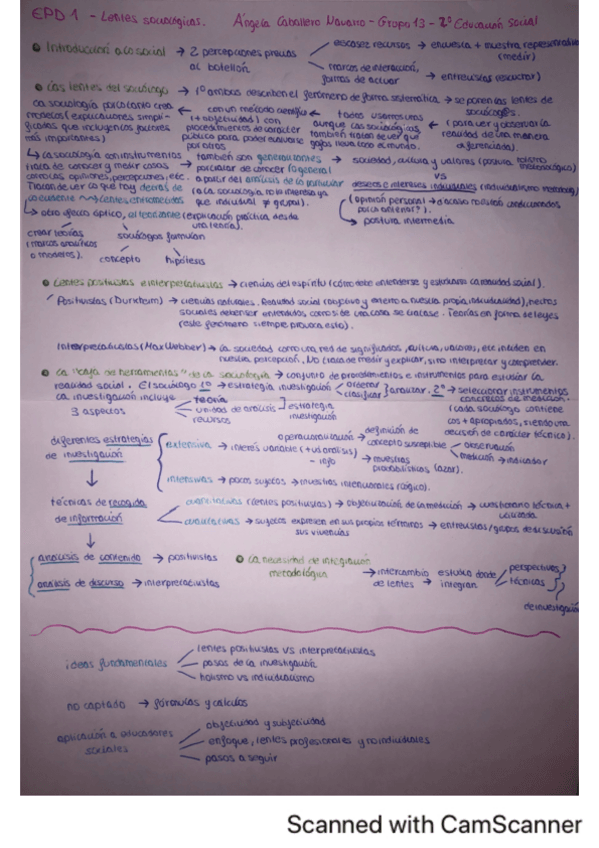 EPD 1 - Lentes sociológicas. Ángela Caballero Navarro - Grupo 13 - 2º Educación Social
Introducción a lo social → 2 percepciones previas al botellón
escasez recursos → encuesta + muestra representativa (medir)
marcos de interacción, formas de actuar → entrevistas (escuchar)
Las lentes del sociólogo → 1º ambos describen el fenómeno de forma sistemática → se ponen las lentes de sociólog@s.
(para ver y observar la realidad de una manera diferenciada).
todos usamos unas gafas para todo el mundo.
con un método científico (+ objetividad) con procedimientos de carácter público para poder evaluarse por otros
La sociología por lo tanto crea modelos (explicaciones simplificadas que incluyen los factores más importantes)
La sociología con instrumentos trata de conocer y medir cosas
opiniones, percepciones, etc.
Tratan de ver lo que hay detrás de lo evidente
también son generalizantes → sociedad, cultura y valores (postura holismo metodológico)
por tratar de conocer lo general a partir del análisis de lo particular
vs
deseos e intereses individuales (individualismo metodológico)
postura intermedia
otro efecto óptico, el teorizante (explicación práctica desde una teoría).
crear teorías (marcos analíticos o modelos).
sociólogos formulan
concepto
hipótesis
Lentes positivistas e interpretativistas → ciencias del espíritu (cómo debe entenderse y estudiarse la realidad social).
Positivistas (Durkheim) → ciencias naturales. Realidad social (objetiva y externa a nuestra propia individualidad), hechos
sociales deben ser entendidos como si de una cosa se tratase. Teorías en forma de leyes
(este fenómeno siempre provoca esto).
Interpretativistas (Max Webber) → la sociedad como una red de significados, cultura, valores, etc inciden en
nuestra percepción. No trata de medir y explicar, sino interpretar y comprender.
La "caja de herramientas" de la sociología → conjunto de procedimientos e instrumentos para estudiar la
realidad social. El sociólogo 1º → estrategia investigación
ordenar
clasificar
analizar. 2º → seleccionar instrumentos concretos de medición.
(cada sociólogo contiene los + apropiados, siendo una decisión de carácter técnico).
La investigación incluye 3 aspectos
teoría
unidad de análisis
recursos
estrategia investigación
diferentes estrategias de investigación
extensiva → interés variable (+ us análisis) - info
operacionalización → definición de concepto susceptible
observación
medición → indicador
muestras probabilísticas (azar).
intensivas → pocos sujetos → muestras intencionales (lógica).
técnicas de recogida de información
cuantitativas (lentes positivistas) → objetivación de la medición → cuestionario técnica + utilizada.
cualitativas → sujetos expresen en sus propios términos sus vivencias → entrevistas/grupos de discusión
análisis de contenido → positivistas
análisis de discurso → interpretativistas
La necesidad de integración metodológica → intercambio de lentes → estudio donde integran
perspectivas
técnicas
de investigación
ideas fundamentales
lentes positivistas vs interpretativistas
pasos de la investigación
holismo vs individualismo
no captado → fórmulas y cálculos
aplicación a educadores sociales
objetividad y subjetividad
enfoque, lentes profesionales y no individuales
pasos a seguir
Scanned with CamScanner